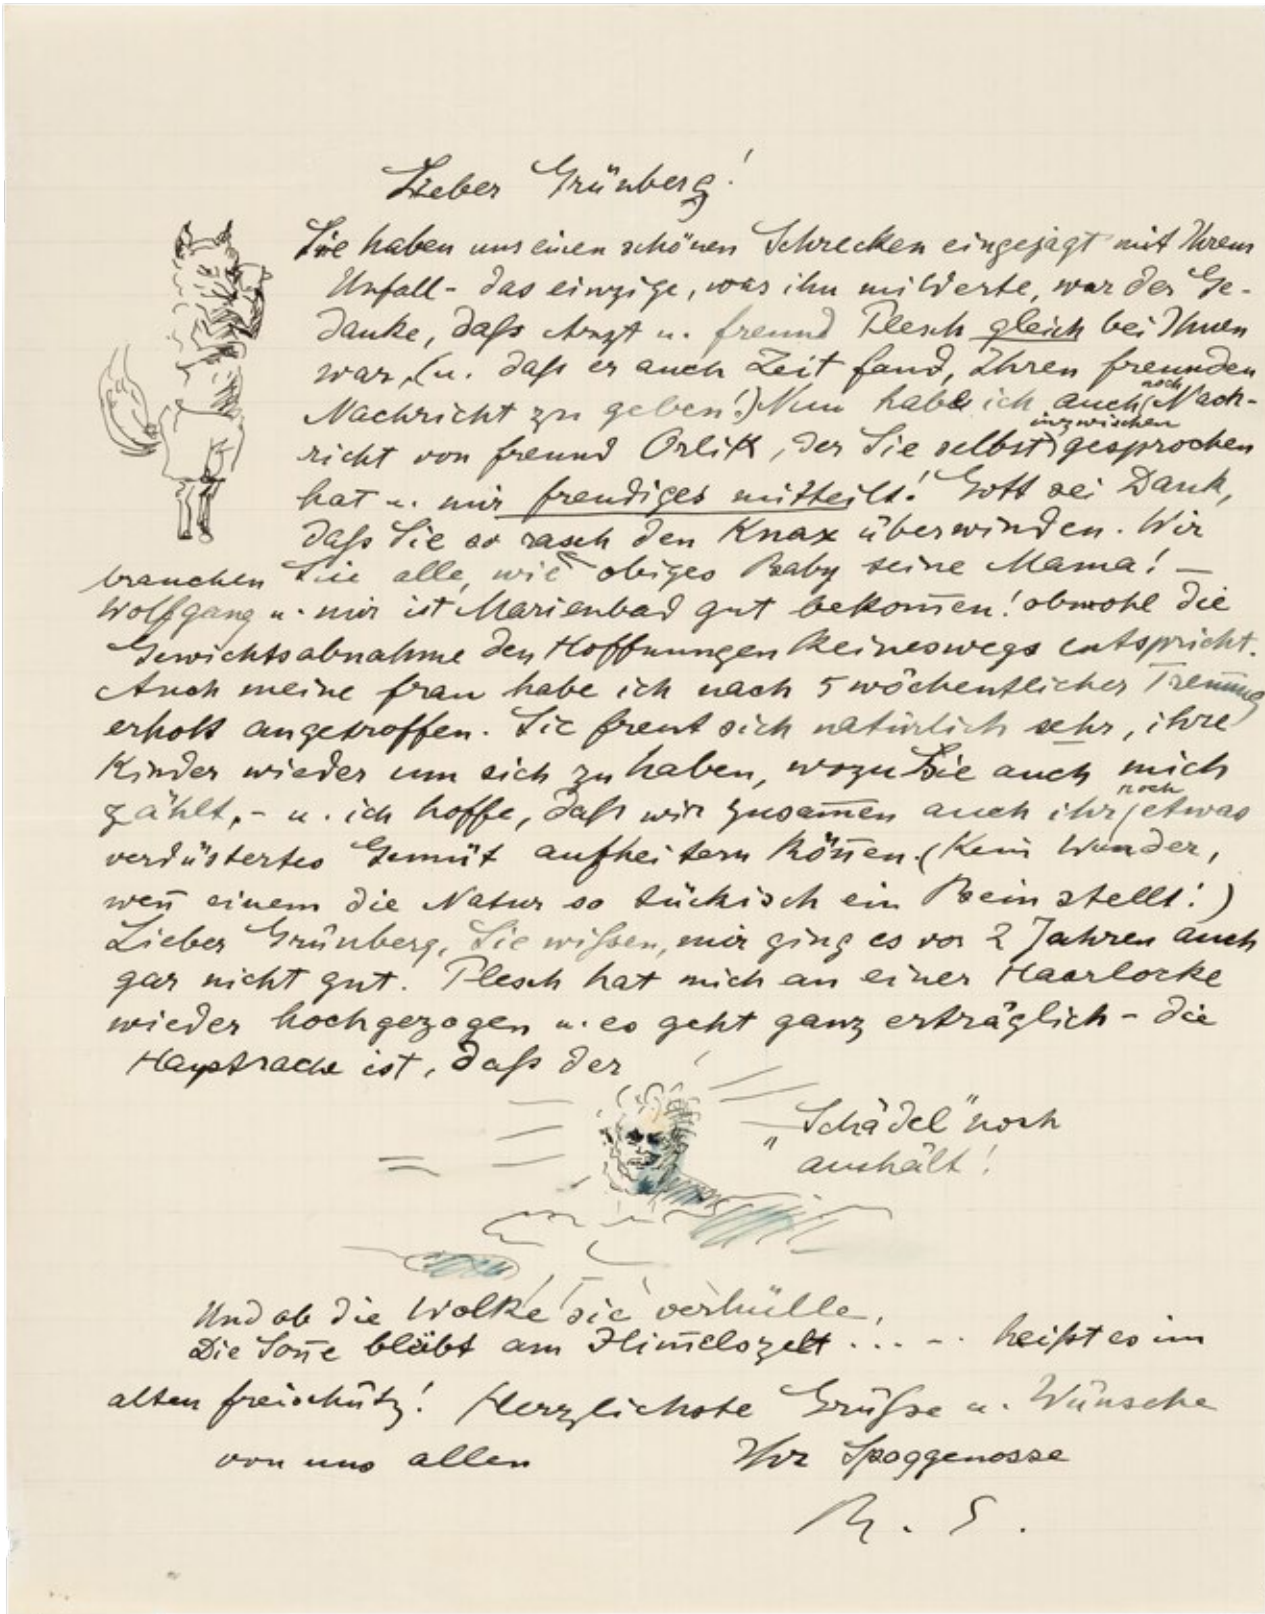 Lieber Grünberg!
Sie haben uns einen schönen Schrecken eingejagt mit Ihrem
Unfall - das einzige, was ihn milderte, war der Ge-
danke, daß Arzt u. Freund Plesch gleich bei Ihnen
war, (u. daß er auch Zeit fand, Ihren Freunden
Nachricht zu geben!) Nun habe ich auch noch Nach-
richt von Freund Orlik, der Sie selbst inzwischen gesprochen
hat u. mir freudiges mitteilt! Gott sei Dank,
daß Sie so rasch den Knax überwinden. Wir
brauchen Sie alle, wie obiges Baby seine Mama! -
Wolfgang u. mir ist Marienbad gut bekom̄en! obwohl die
Gewichtsabnahme den Hoffnungen keineswegs entspricht.
Auch meine Frau habe ich nach 5 wöchentlicher Tren̄ung
erholt angetroffen. Sie freut sich natürlich sehr, ihre
Kinder wieder um sich zu haben, wozu Sie auch mich
zählt, - u. ich hoffe, daß wir zusam̄en auch ihr noch etwas
verdüstertes Gemüt aufheitern kön̄en. (Kein Wunder,
wen̄ einem die Natur so tückisch ein Bein stellt!)
Lieber Grünberg, Sie wißen, mir ging es vor 2 Jahren auch
gar nicht gut. Plesch hat mich an einer Haarlocke
wieder hochgezogen u. es geht ganz erträglich - die
Hauptsache ist, daß der
„Schädel" noch
aushält!
Und ob die Wolke sie verhülle,
Die Son̄e bleibt am Him̄elszelt ... - . heißt es im
alten Freischütz! Herzlichste Grüße u. Wünsche
von uns allen Ihr